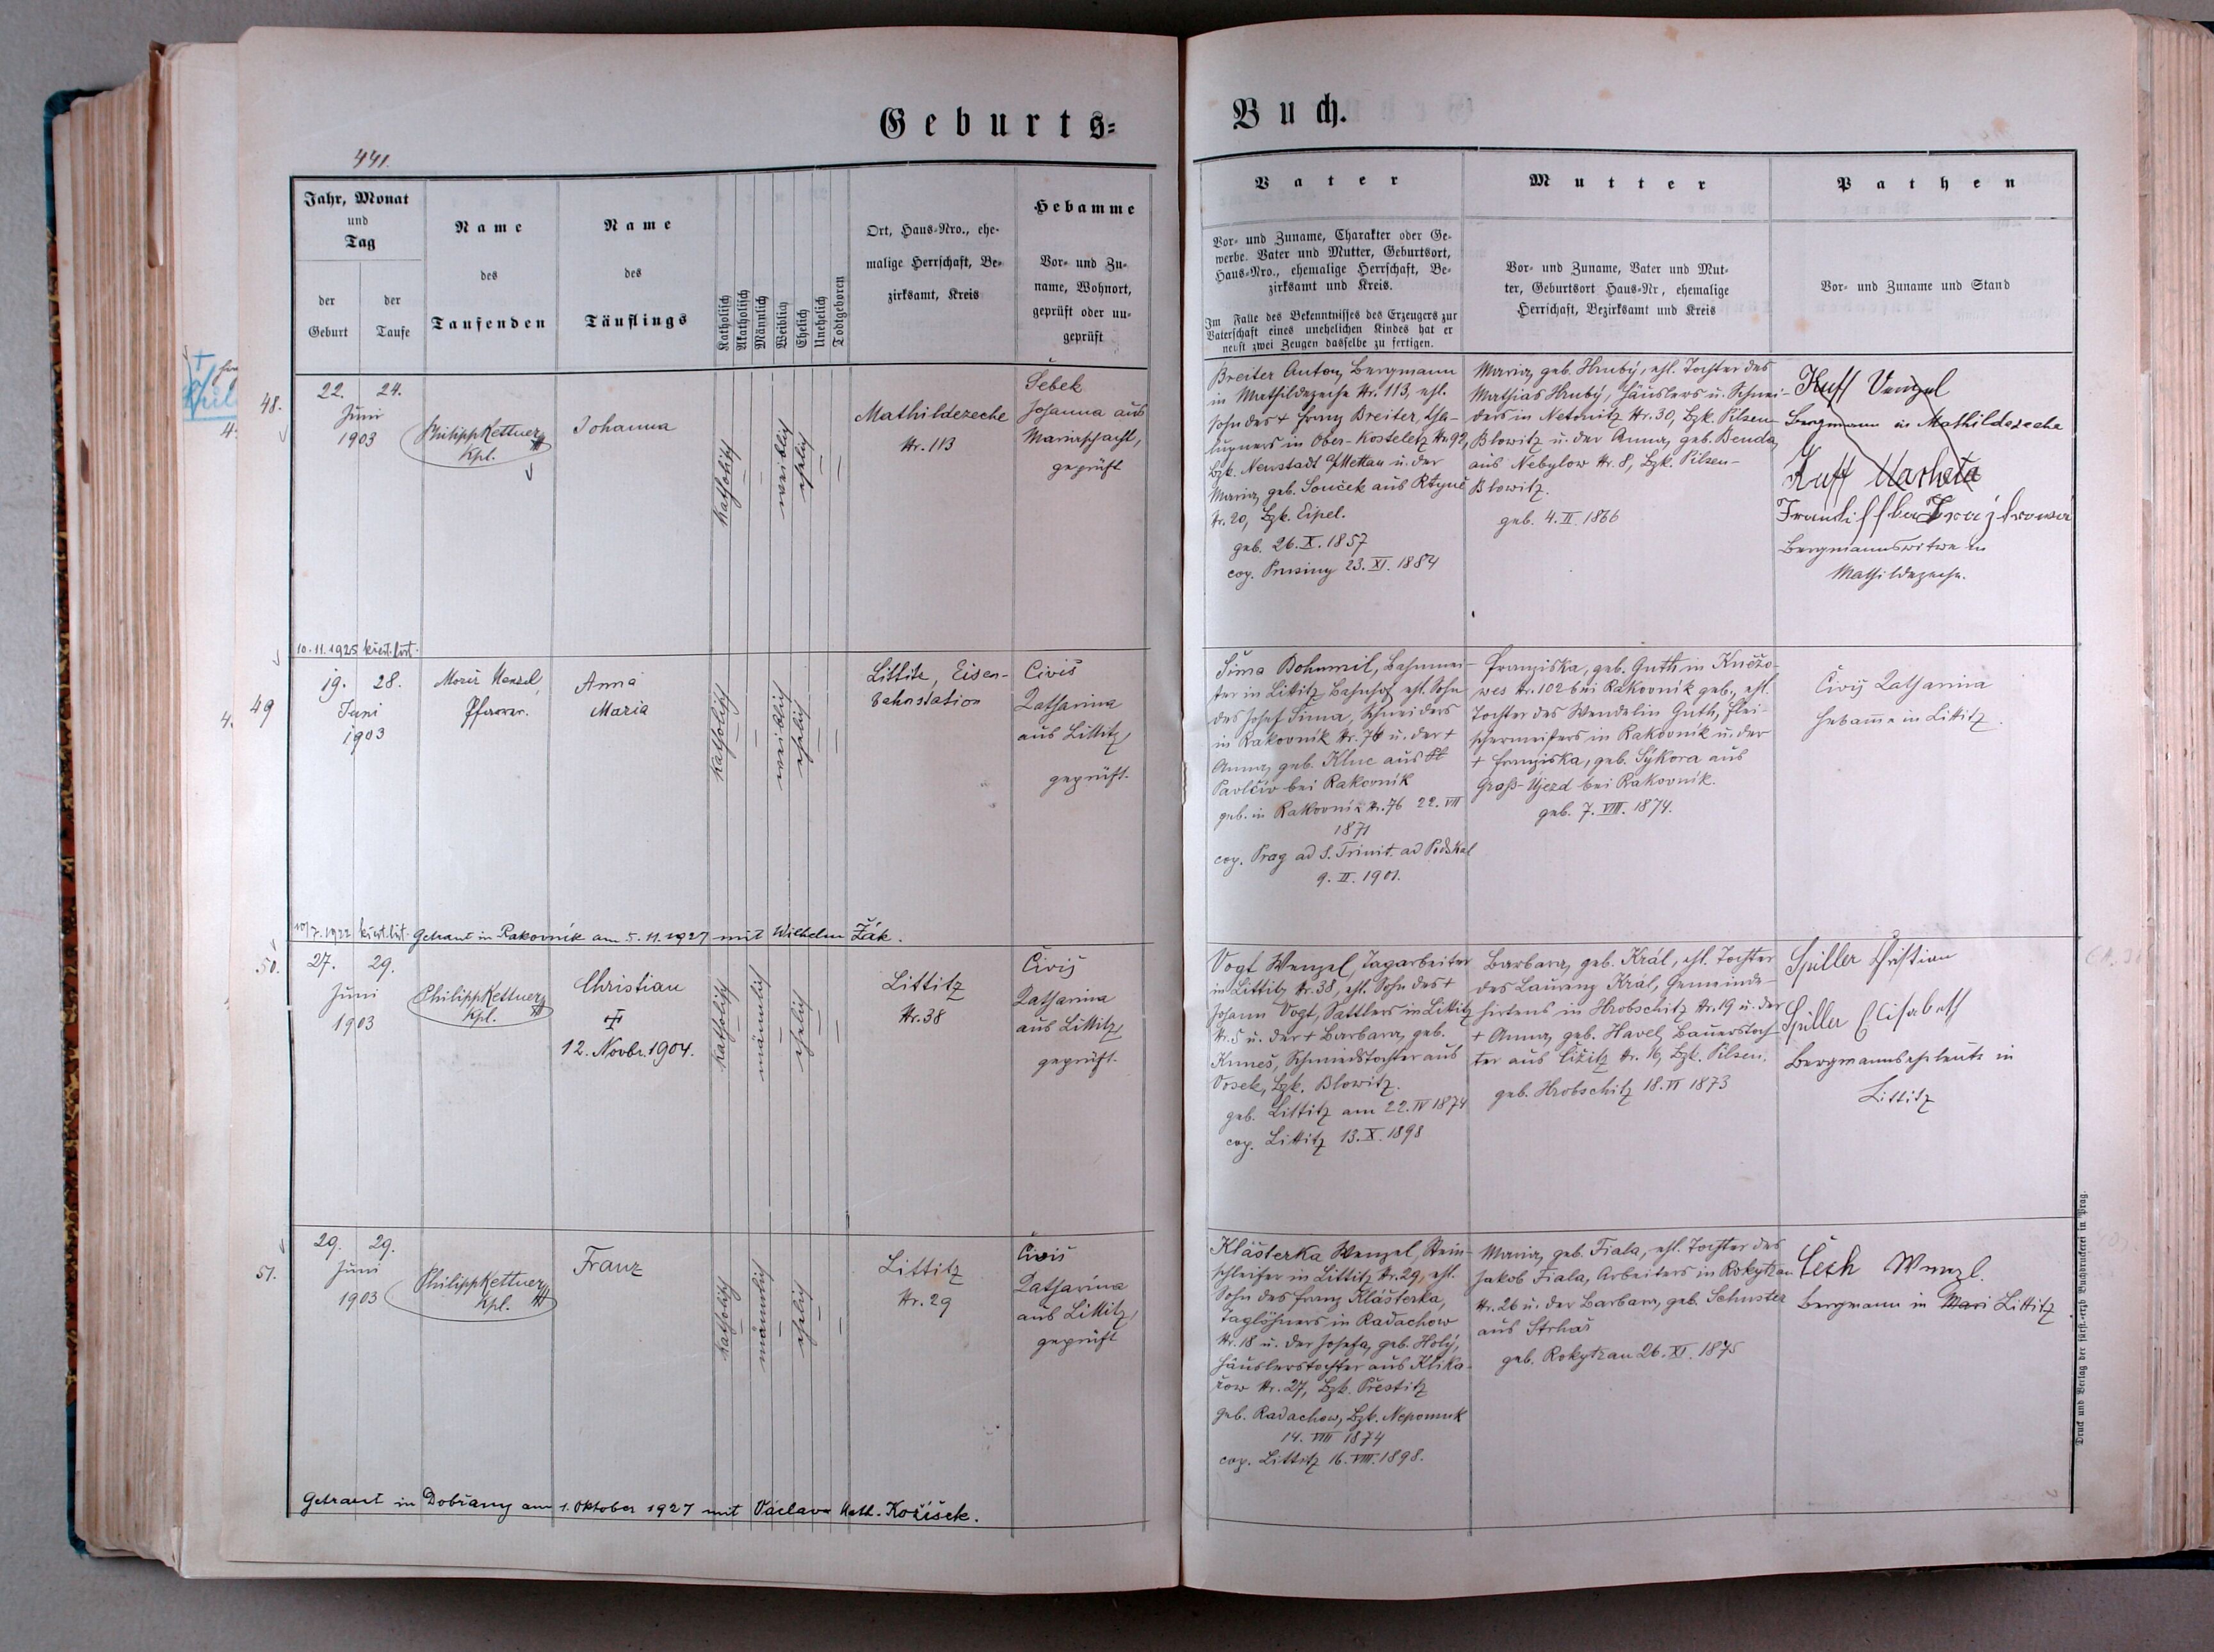 Geburts-
Buch.
441.
Jahr, Monat
und
Tag
der
Geburt
der
Taufe
Name
des
Taufenden
Name
des
Täuflings
Katholisch
Akatholisch
Männlich
Weiblich
Ehelich
Unehelich
Todtgeboren
Ort, Haus-Nro., ehe-
malige Herrschaft, Be-
zirksamt, Kreis
Hebamme
Vor- und Zu-
name, Wohnort,
geprüft oder un-
geprüft
Vater
Vor- und Zuname, Charakter oder Ge-
werbe. Vater und Mutter, Geburtsort,
Haus-Nro., ehemalige Herrschaft, Be-
zirksamt und Kreis.
Im Falle des Bekenntnisses des Erzeugers zur
Vaterschaft eines unehelichen Kindes hat er
nebst zwei Zeugen dasselbe zu fertigen.
Mutter
Vor- und Zuname, Vater und Mut-
ter, Geburtsort Haus-Nr, ehemalige
Herrschaft, Bezirksamt und Kreis
Pathen
Vor- und Zuname und Stand
48.
22. 24.
Juni
1903
Philipp Kettner
Kpl.
Johanna
katholisch
weiblich
ehelich
Mathildezeche
Nr. 113
Šebek
Johanna aus
Marienschacht,
geprüft
Breiter Anton, Bergmann
in Mathildezeche Nr. 113, ehl.
Sohn des + Franz Breiter, Cha-
lupners in Ober-Kosteletz Nr. 92,
Bzk. Neustadt a/Mettau u. der
Maria, geb. Souček aus Rtyně
Nr. 20, Bzk. Eipel.
geb. 26. X. 1857
cop. Prusiny 23. XI. 1884
Maria, geb. Hrubý, ehl. Tochter des
Mathias Hrubý, Häuslers u. Schnei-
ders in Netonitz Nr. 30, Bzk. Pilsen-
Blowitz u. der Anna, geb. Benda,
aus Nebylow Nr. 8, Bzk. Pilsen-
Blowitz.
geb. 4. II. 1866
Kuff Venzel
Bergmann in Mathildezeche
Kuff
Bergmannswitwe in
Mathildezeche.
10.11.1925
49
19. 28.
Juni
1903
Moriz Menzel,
Pfarrer.
Anna
Maria
katholisch
weiblich
ehelich
Littitz, Eisen-
bahnstation
Civiš
Katharina
aus Littitz,
geprüft.
Šima Bohumil, Bahnmei-
ster in Littitz Bahnhof ehl. Sohn
des Josef Šima, Schneiders
in Rakovník Nr. 76 u. der +
Anna, geb. Kluc aus
Pavlčiv bei Rakovník
geb. in Rakovník Nr. 76 22. VII
1871
cop. Prag ad S. Trinit. ad Podskal
9. II. 1901.
Franziska, geb. Guth in Kněžo-
wes Nr. 102 bei Rakovník geb., ehl.
Tochter des Wendelin Guth, Flei-
schermeisters in Rakovník u. der
+ Franziska, geb. Sýkora aus
Groß-Újezd bei Rakovník.
geb. 7. VIII. 1874.
Čivij Katharina
Hebamme in Littitz.
10/7.1922
Getraut in Rakovník am 5.11.1927 mit Wilhelm Žák.
50.
27. 29.
Juni
1903
Philipp Kettner
Kpl.
Christian
12. Novbr. 1904.
katholisch
männlich
ehelich
Littitz
Nr. 38
Čivij
Katharina
aus Littitz,
geprüft.
Vogt Wenzel, Tagarbeiter
in Littitz Nr. 38, ehl. Sohn des +
Johann Vogt, Sattlers in Littitz
Nr. 5 u. der + Barbara, geb.
Kuneš, Schmiedstochter aus
Vosek, Bzk. Blowitz.
geb. Littitz am 22. IV 1874
cop. Littitz 13. X. 1898
Barbara, geb. Král, ehl. Tochter
des Laurenz Král, Gemeinde-
hirtens in Hrobschitz Nr. 19 u. der
+ Anna, geb. Havel, Bauerstoch-
ter aus Čižitz Nr. 16, Bzk. Pilsen.
geb. Hrobschitz 18. VI 1873
Spiller Christian
Spiller Elisabeth
Bergmannseheleute in
Littitz
51.
29. 29.
Juni
1903
Philipp Kettner
Kpl.
Franz
katholisch
männlich
ehelich
Littitz
Nr. 29
Čiviš
Katharina
aus Littitz,
geprüft
Klášterka Wenzel, Stein-
schleifer in Littitz Nr. 29, ehl.
Sohn des Franz Klášterka,
Taglöhners in Radachow
Nr. 18 u. der Josefa, geb. Holý,
Häuslerstochter aus Klika-
řow Nr. 27, Bzk. Přestitz
geb. Radachow, Bzk. Nepomuk
14. VIII 1874
cop. Littitz 16. VIII. 1898.
Maria, geb. Fiala, ehl. Tochter des
Jakob Fiala, Arbeiters in Rokytzan
Nr. 26 u. der Barbara, geb. Schuster
aus Strhař
geb. Rokytzan 26. XI. 1875
Čech Wenzl.
Bergmann in Mari Littitz
Getraut in Dobřany am 1. Oktober 1927 mit Václava Kath. Kožíšek.
Druck und Verlag der fürst.-erzb Buchdruckerei in Prag.